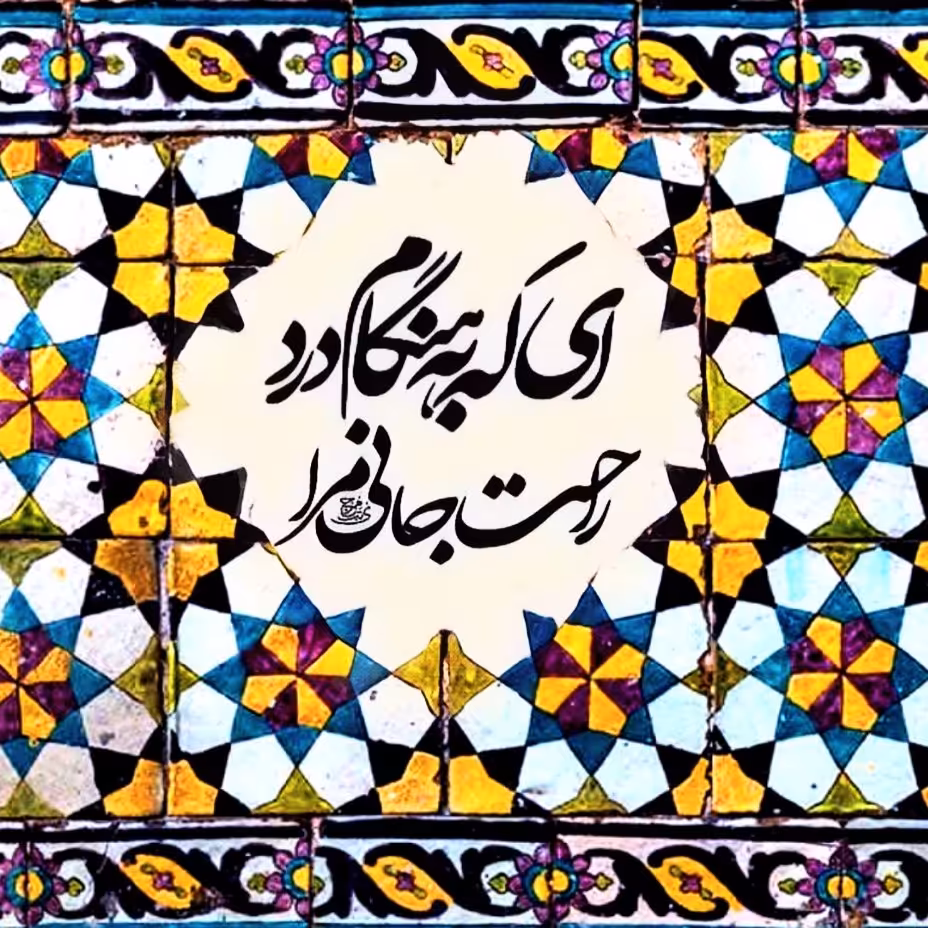 ای که به هنگام درد
راحت جانی مرا